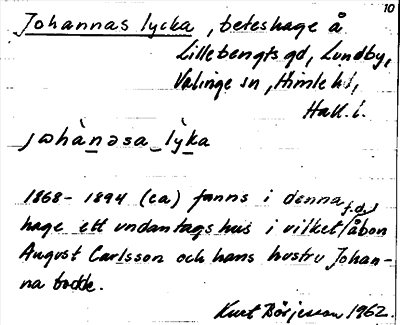 10
Johannas lycka, beteshage å
Lillebengts gd, Lundby,
Valinge sn, Himle hd,
Hall. l.
jωhànəsa_lỳka
1868-1894 (ca) fanns i denna
hage ett undantagshus i vilket f.d. åbon
August Carlsson och hans hustru Johan-
na bodde.
Kurt Börjesson 1962.